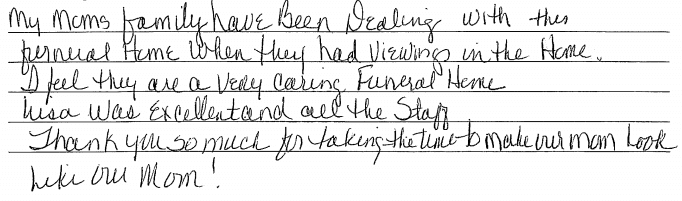 My Moms family have Been Dealing with this
funeral Home When they had Viewings in the Home.
I feel they are a Very Caring Funeral Home
Lisa Was Excellent and all the Staff
Thank you so much for taking the time to make our mom Look
Like our Mom!